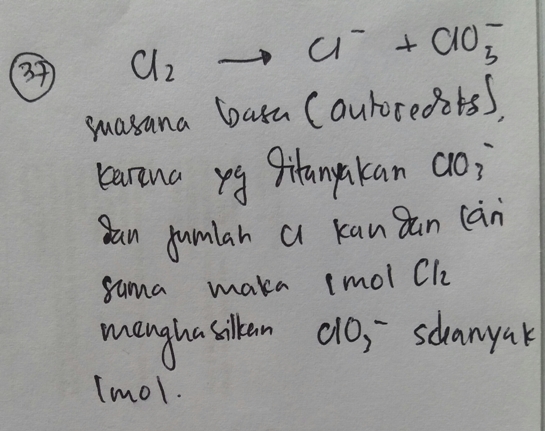 37 Cl₂ → Cl⁻ + ClO₃⁻
suasana basa (autoredoks),
karena yg ditanyakan ClO₃⁻
dan jumlah Cl kan dan kiri
sama maka 1 mol Cl₂
menghasilkan ClO₃⁻ sebanyak
1mol.